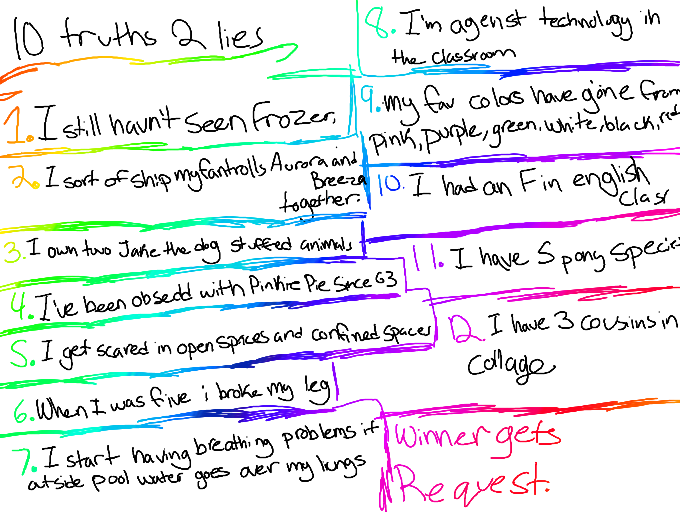 10 truths 2 lies
1. I still havn't seen Frozen.
2. I sort of ship my fantrolls Aurora and
Breeza
together.
3. I own two Jake the dog stuffed animals
4. I've been obsedd with Pinkie Pie since G3
5. I get scared in open spaces and confined spaces
6. When I was five i broke my leg
7. I start having breathing problems if
outside pool water goes over my lungs
8. I'm agenst technology in
the classroom
9. my fav colors have gone from
pink, purple, green, white, black, red
10. I had an F in english
class
11. I have 5 pony species
12. I have 3 cousins in
collage
Winner gets
Request.